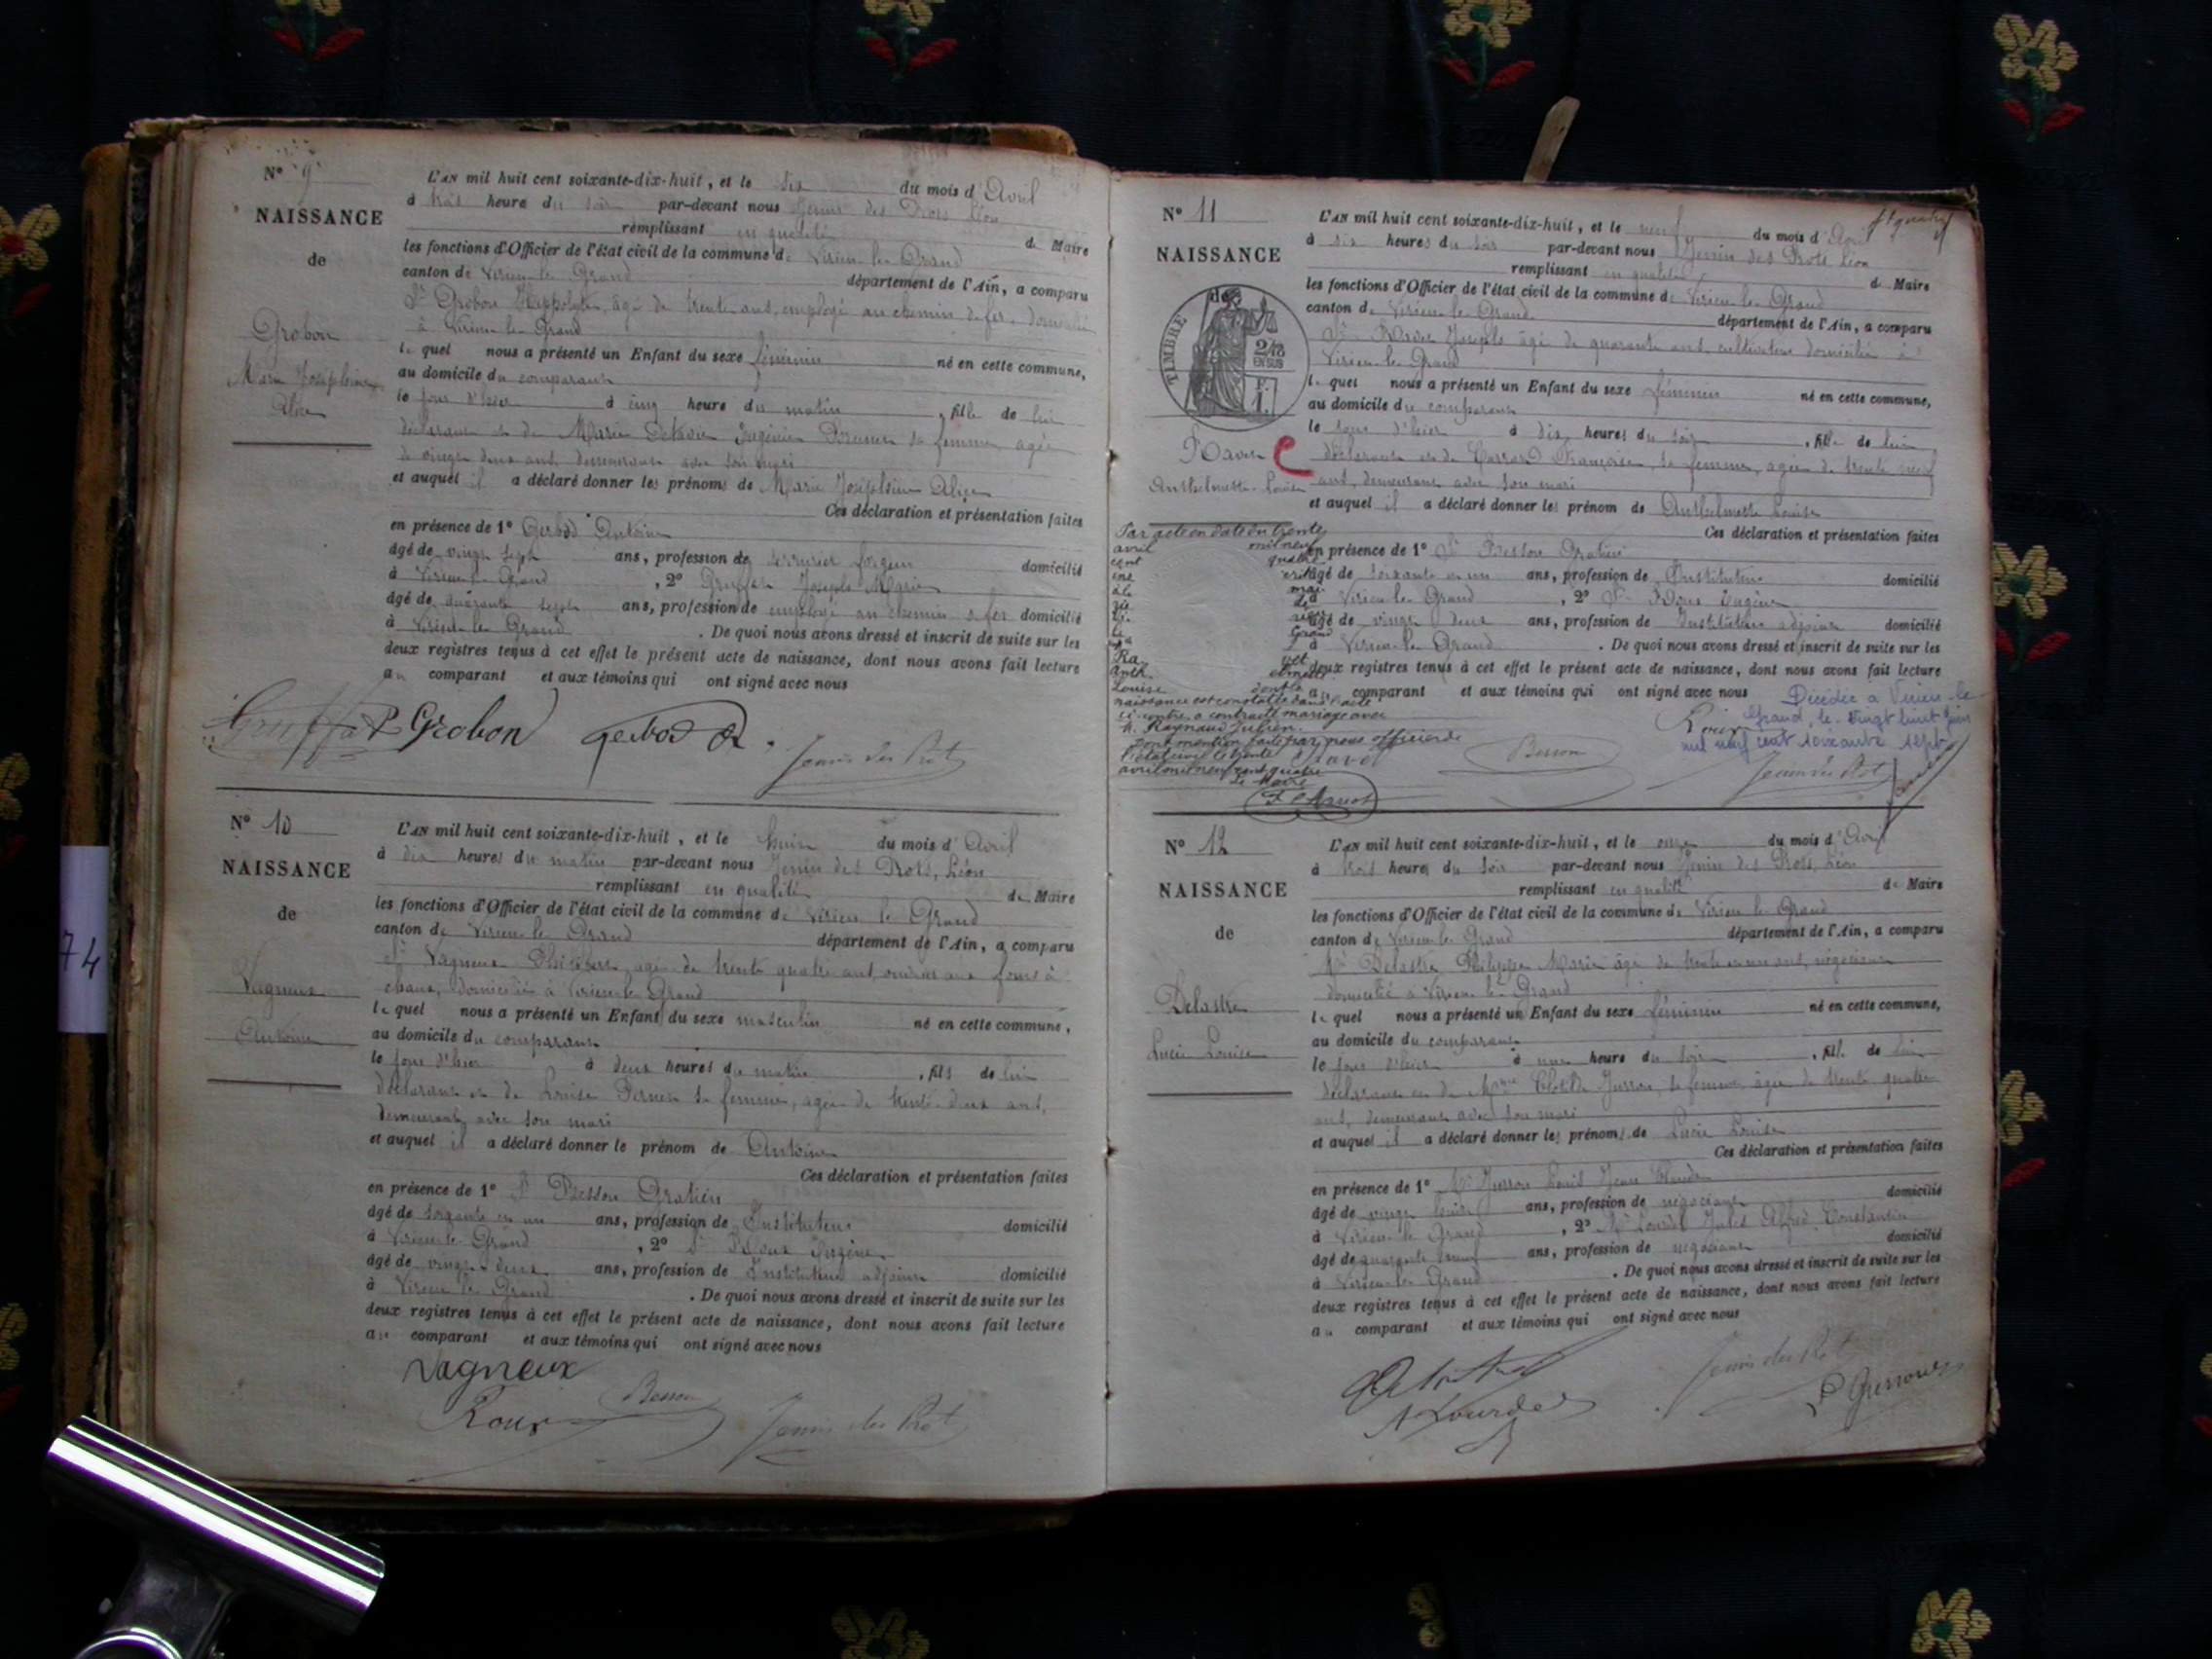 N° 9
NAISSANCE
de
Grobon
Marie Joséphine
Alice
L'AN mil huit cent soixante-dix-huit, et le six du mois d'Avril
à trois heure du soir par-devant nous Jenin des Prots Léon
remplissant en qualité de Maire
les fonctions d'Officier de l'état civil de la commune de Virieu-le-Grand
canton de Virieu-le-Grand département de l'Ain, a comparu
Sr Grobon Hippolyte, âgé de trente ans, employé au chemin de fer, domicilié
à Virieu-le-Grand
lequel nous a présenté un Enfant du sexe féminin né en cette commune,
au domicile du comparant
le jour d'hier à cinq heure du matin, fille de lui
déclarant et de Marie Octavie Eugénie sa femme, agée
de vingt deux ans demeurant avec son mari
et auquel il a déclaré donner les prénoms de Marie Joséphine Alice
Ces déclaration et présentation faites
en présence de 1° Gerbod Antoine
âgé de vingt sept ans, profession de serrurier forgeur domicilié
à Virieu-le-Grand, 2° Gruffat Joseph Marie
âgé de quarante sept ans, profession de employé au chemin de fer domicilié
à Virieu-le-Grand. De quoi nous avons dressé et inscrit de suite sur les
deux registres tenus à cet effet le présent acte de naissance, dont nous avons fait lecture
au comparant et aux témoins qui ont signé avec nous
Gruffat P Grobon Gerbod A. Jenin des Prots
N° 10
NAISSANCE
de
Vagneux
Antoine
L'AN mil huit cent soixante-dix-huit, et le huit du mois d'Avril
à dix heures du matin par-devant nous Jenin des Prots, Léon
remplissant en qualité de Maire
les fonctions d'Officier de l'état civil de la commune de Virieu le Grand
canton de Virieu-le-Grand département de l'Ain, a comparu
Sr Vagneux agé de trente quatre ans, ouvrier aux fours à
chaux, domicilié à Virieu-le-Grand
lequel nous a présenté un Enfant du sexe masculin né en cette commune,
au domicile du comparant
le jour d'hier à deux heures du matin, fils de lui
déclarant et de Louise Pernet sa femme, agée de trente deux ans,
demeurant avec son mari
et auquel il a déclaré donner le prénom de Antoine
Ces déclaration et présentation faites
en présence de 1° Sr Besson Gratien
âgé de soixante et un ans, profession de Instituteur domicilié
à Virieu-le-Grand, 2° Sr Roux Eugène
âgé de vingt deux ans, profession de Instituteur adjoint domicilié
à Virieu le Grand. De quoi nous avons dressé et inscrit de suite sur les
deux registres tenus à cet effet le présent acte de naissance, dont nous avons fait lecture
au comparant et aux témoins qui ont signé avec nous
Vagneux
Roux Besson Jenin des Prots
74
N° 11
NAISSANCE
de
TIMBRE
2/10
EN SUS
Ravet
Anthelmette-Louise
L'AN mil huit cent soixante-dix-huit, et le neuf du mois d'Avril
à six heures du soir par-devant nous Jenin des Prots Léon
remplissant en qualité de Maire
les fonctions d'Officier de l'état civil de la commune de Virieu-le-Grand
canton de Virieu-le-Grand département de l'Ain, a comparu
Sr Ravet Joseph âgé de quarante ans cultivateur domicilié à
Virieu-le-Grand
lequel nous a présenté un Enfant du sexe féminin né en cette commune,
au domicile du comparant
le jour d'hier à dix heures du soir, fille de lui
déclarant et de Françoise, sa femme, agée de trente neuf
ans, demeurant avec son mari
et auquel il a déclaré donner les prénom de Anthelmette Louise
Ces déclaration et présentation faites
en présence de 1° Sr Besson Gratien
âgé de soixante et un ans, profession de Instituteur domicilié
à Virieu-le-Grand, 2° Sr Roux Eugène
âgé de vingt deux ans, profession de Instituteur adjoint domicilié
à Virieu-le-Grand. De quoi nous avons dressé et inscrit de suite sur les
deux registres tenus à cet effet le présent acte de naissance, dont nous avons fait lecture
au comparant et aux témoins qui ont signé avec nous
Par acte en date du trente
avril mil neuf
cent quatre
Louise dont la
naissance est constatée dans l'acte
ci-contre, a contracté mariage avec
M. Raynaud Julien.
Dont mention faite par nous officier de
l'état civil le trente
avril mil neuf cent quatre
Le Maire
Décédée à Virieu-le-
Grand, le vingt huit juin
mil neuf cent soixante sept
Roux Ravet Besson Jenin des Prots
N° 12
NAISSANCE
de
Delastre
Lucie Louise
L'AN mil huit cent soixante-dix-huit, et le onze du mois d'Avril
à trois heures du soir par-devant nous Jenin des Prots, Léon
remplissant en qualité de Maire
les fonctions d'Officier de l'état civil de la commune de Virieu le Grand
canton de Virieu-le-Grand département de l'Ain, a comparu
Mr Delastre Philippe Marie âgé de trente ans, négociant
domicilié à Virieu-le-Grand
lequel nous a présenté un Enfant du sexe féminin né en cette commune,
au domicile du comparant
le jour d'hier à une heure du soir, fille de lui
déclarant et de Mme Clotilde Jusson, sa femme âgée de trente quatre
ans, demeurant avec son mari
et auquel il a déclaré donner les prénoms de Lucie Louise
Ces déclaration et présentation faites
en présence de 1° Mr Jusson Louis Jean Claude
âgé de vingt huit ans, profession de négociant domicilié
à Virieu-le-Grand, 2° Mr Lourdel Jules Alfred Constantin
âgé de quarante neuf ans, profession de négociant domicilié
à Virieu-le-Grand. De quoi nous avons dressé et inscrit de suite sur les
deux registres tenus à cet effet le présent acte de naissance, dont nous avons fait lecture
au comparant et aux témoins qui ont signé avec nous
Jenin des Prots